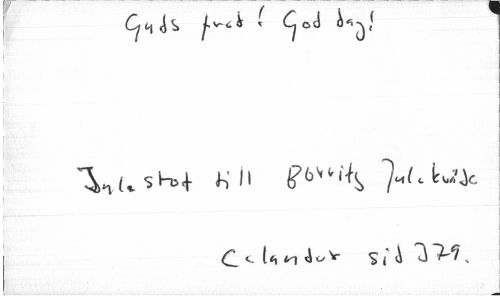 Guds fred! God dag!
Julastot till Börrits Julakväde
Calander sid 379.